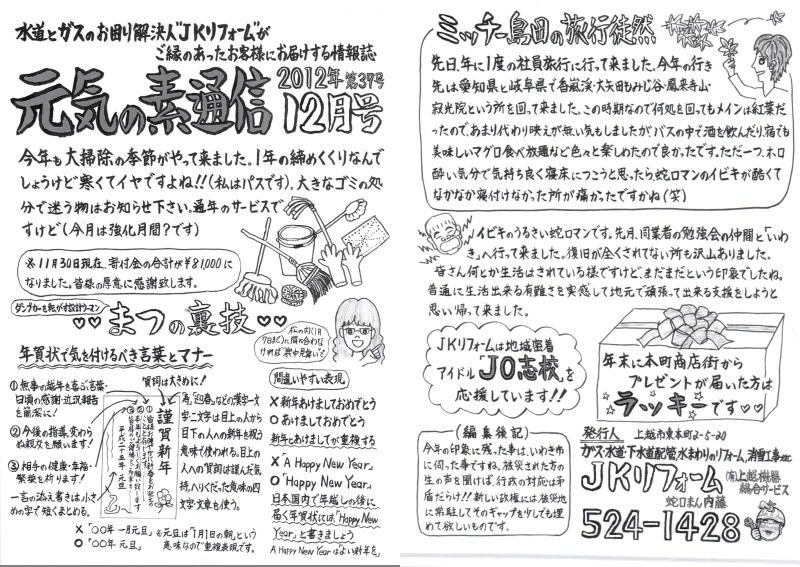 水道とガスのお困り解決人"JKリフォーム"が
ご縁のあったお客様にお届けする情報誌
元気の素通信
2012年 第37号
12月号
今年も大掃除の季節がやって来ました。1年の締めくくりなんで
しょうけど寒くてイヤですよね!!(私はパスです)。大きなゴミの処
分で迷う物はお知らせ下さい。通年のサービスで
すけど(今月は強化月間?です)
※11月30日現在、寄付金の合計が¥81,000に
なりました。皆様の厚意に感謝致します。
ダンプカーを転がす設計ウーマン
♡♡まつの裏技♡♡
松の内(1月
7日まで)に間に合わな
ければ「寒中見舞い」で
年賀状で気を付けるべき言葉とマナー
①無事の越年を喜ぶ言葉・
日頃の感謝・近況報告
を簡潔に!
②今後の指導、変わら
ぬ親交を願います!
③相手の健康・幸福・
繁栄を祈ります!
一言の添え書きは小さ
めの字で短くまとめる。
賀詞は大きめに!
謹賀新年
平成二十五年 元旦
「寿」「迎春」などの漢字一文
字二文字は目上の人から
目下の人への新年を祝う
意味で使われる。目上の
人への賀詞は謹んだ気
持、へりくだった意味の四
文字文章も使う。
×「'00年 一月元旦」
○「'00年 元旦」
※元旦は「1月1日の朝」という
意味なので重複表現です。
間違いやすい表現
×新年あけましておめでとう
○あけましておめでとう
新年とあけましてが重複する
×「A Happy New Year」
○「Happy New Year」
日本国内で年越しの後に
届く年賀状には、「Happy New
Year」と書きましょう
A Happy New Yearはよい新年を、
ミッチー島田の旅行徒然
先日、年に1度の社員旅行に行って来ました。今年の行き
先は愛知県と岐阜県で香嵐渓・大矢田もみじ谷・鳳来寺山・
寂光院という所を回って来ました。この時期なので何処を回ってもメインは紅葉だ
ったので、あまり代わり映えが無い気もしましたが、バスの中で酒を飲んだり、宿でも
美味しいマグロ食べ放題など色々と楽しめたので良かったです。ただ一つ、ホロ
酔い気分で気持ち良く寝床につこうと思ったら蛇ロマンのイビキが酷くて
なかなか寝付けなかった所が痛かったですかね(笑)
イビキのうるさい蛇ロマンです。先月、同業者の勉強会の仲間と「いわ
き」へ行って来ました。復旧が全くされてない所も沢山ありました。
皆さん何とか生活はされている様ですけど、まだまだという印象でしたね。
普通に生活出来る有難さを実感して地元で頑張って出来る支援をしようと
思い帰って来ました。
JKリフォームは地域密着
アイドル「JO志校」を
応援しています!!
年末に本町商店街から
プレゼントが届いた方は
ラッキーです♡♡
(編集後記)
今年の印象に残った事は、いわき市
に伺った事ですね。被災された方の
生の声を聞けば、行政の対応は矛
盾だらけ!!新しい政権には、被災地
に常駐してそのギャップを少しでも埋
めて欲しいものです。
発行人 上越市東本町2-5-20
ガス・水道・下水道配管、水まわりのリフォーム、消雪工事etc
JKリフォーム (有)上越機器
総合サービス
蛇口まん内藤
524-1428